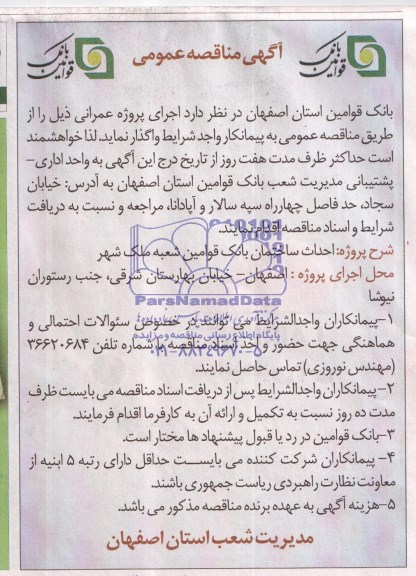 بانک قوامین
آگهی مناقصه عمومی
بانک قوامین
بانک قوامین استان اصفهان در نظر دارد اجرای پروژه عمرانی ذیل را از
طریق مناقصه عمومی به پیمانکار واجد شرایط واگذار نماید. لذا خواهشمند
است حداکثر ظرف مدت هفت روز از تاریخ درج این آگهی به واحد اداری-
پشتیبانی مدیریت شعب بانک قوامین استان اصفهان به آدرس: خیابان
سجاد، حد فاصل چهارراه سپه سالار و آپادانا، مراجعه و نسبت به دریافت
شرایط و اسناد مناقصه اقدام نمایند.
شرح پروژه: احداث ساختمان بانک قوامین شعبه ملک شهر
محل اجرای پروژه : اصفهان - خیابان بهارستان شرقی، جنب رستوران
نیوشا
ParsNamadData
۱-پیمانکاران واجدالشرایط می توانند در خصوص سئوالات احتمالی و
پایگاه اطلاع رسانی مناقصه و مزایده
هماهنگی جهت حضور و اخذ اسناد مناقصه با شماره تلفن ۳۶۶۲۰۶۸۴
۰۲۱-۸۸۳۴۹۶۷۰-۵
(مهندس نوروزی) تماس حاصل نمایند.
۲-پیمانکاران واجدالشرایط پس از دریافت اسناد مناقصه می بایست ظرف
مدت ده روز نسبت به تکمیل و ارائه آن به کارفرما اقدام فرمایند.
۳-بانک قوامین در رد یا قبول پیشنهاد ها مختار است.
۴- پیمانکاران شرکت کننده می بایست حداقل دارای رتبه ۵ ابنیه از
معاونت نظارت راهبردی ریاست جمهوری باشند.
۵-هزینه آگهی به عهده برنده مناقصه مذکور می باشد.
مدیریت شعب استان اصفهان